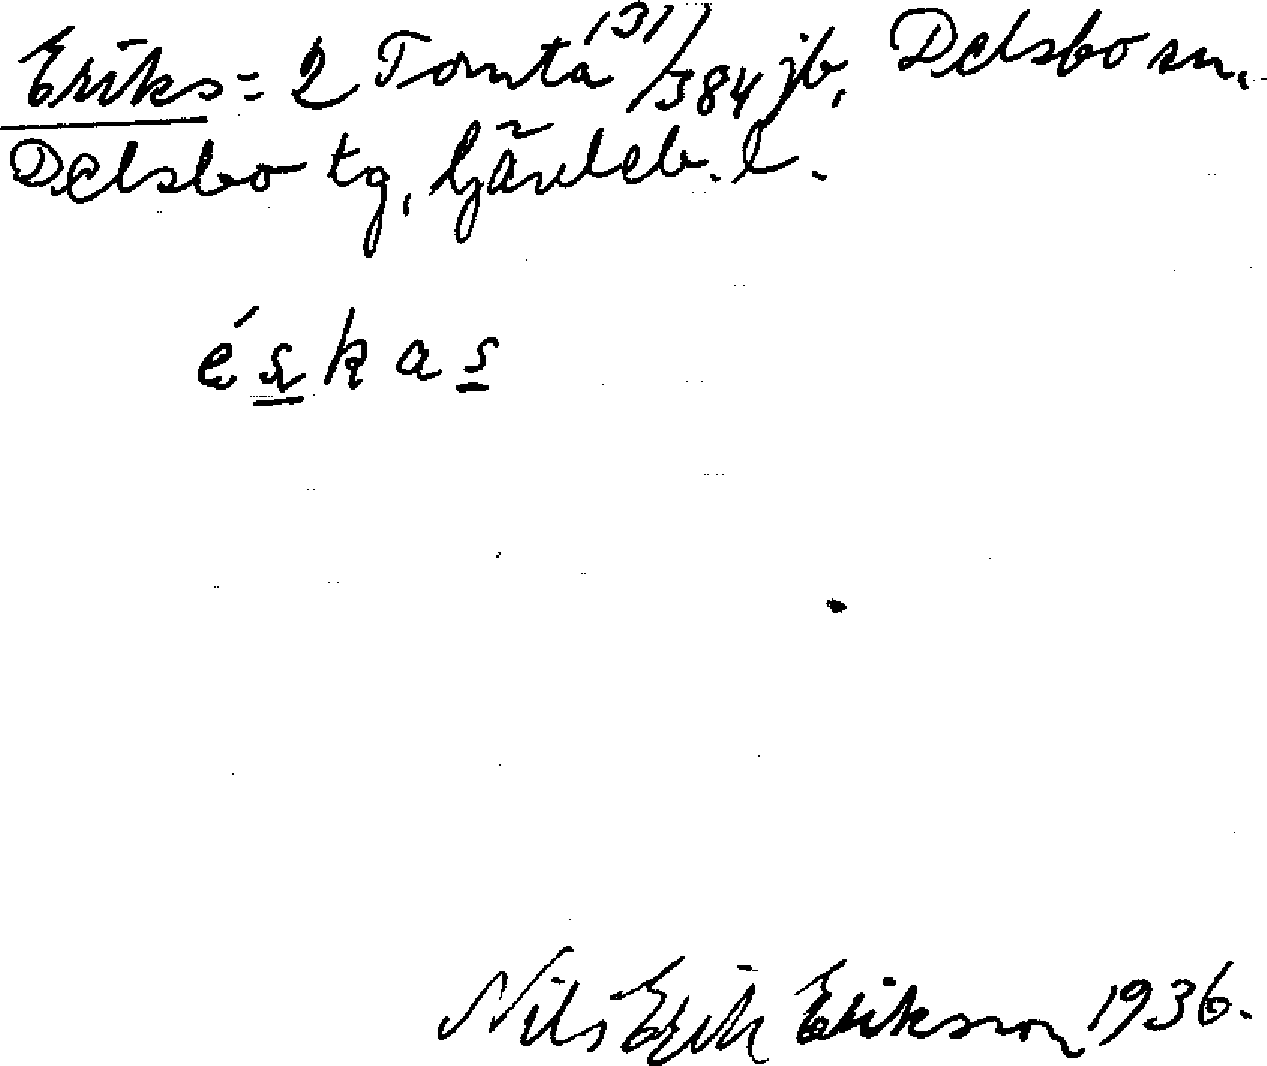 Eriks = 2 Tomta 131/384 jb, Delsbo sn,
Delsbo tg, Gävleb. l.
éskas
Nils Erik Erikson 1936.